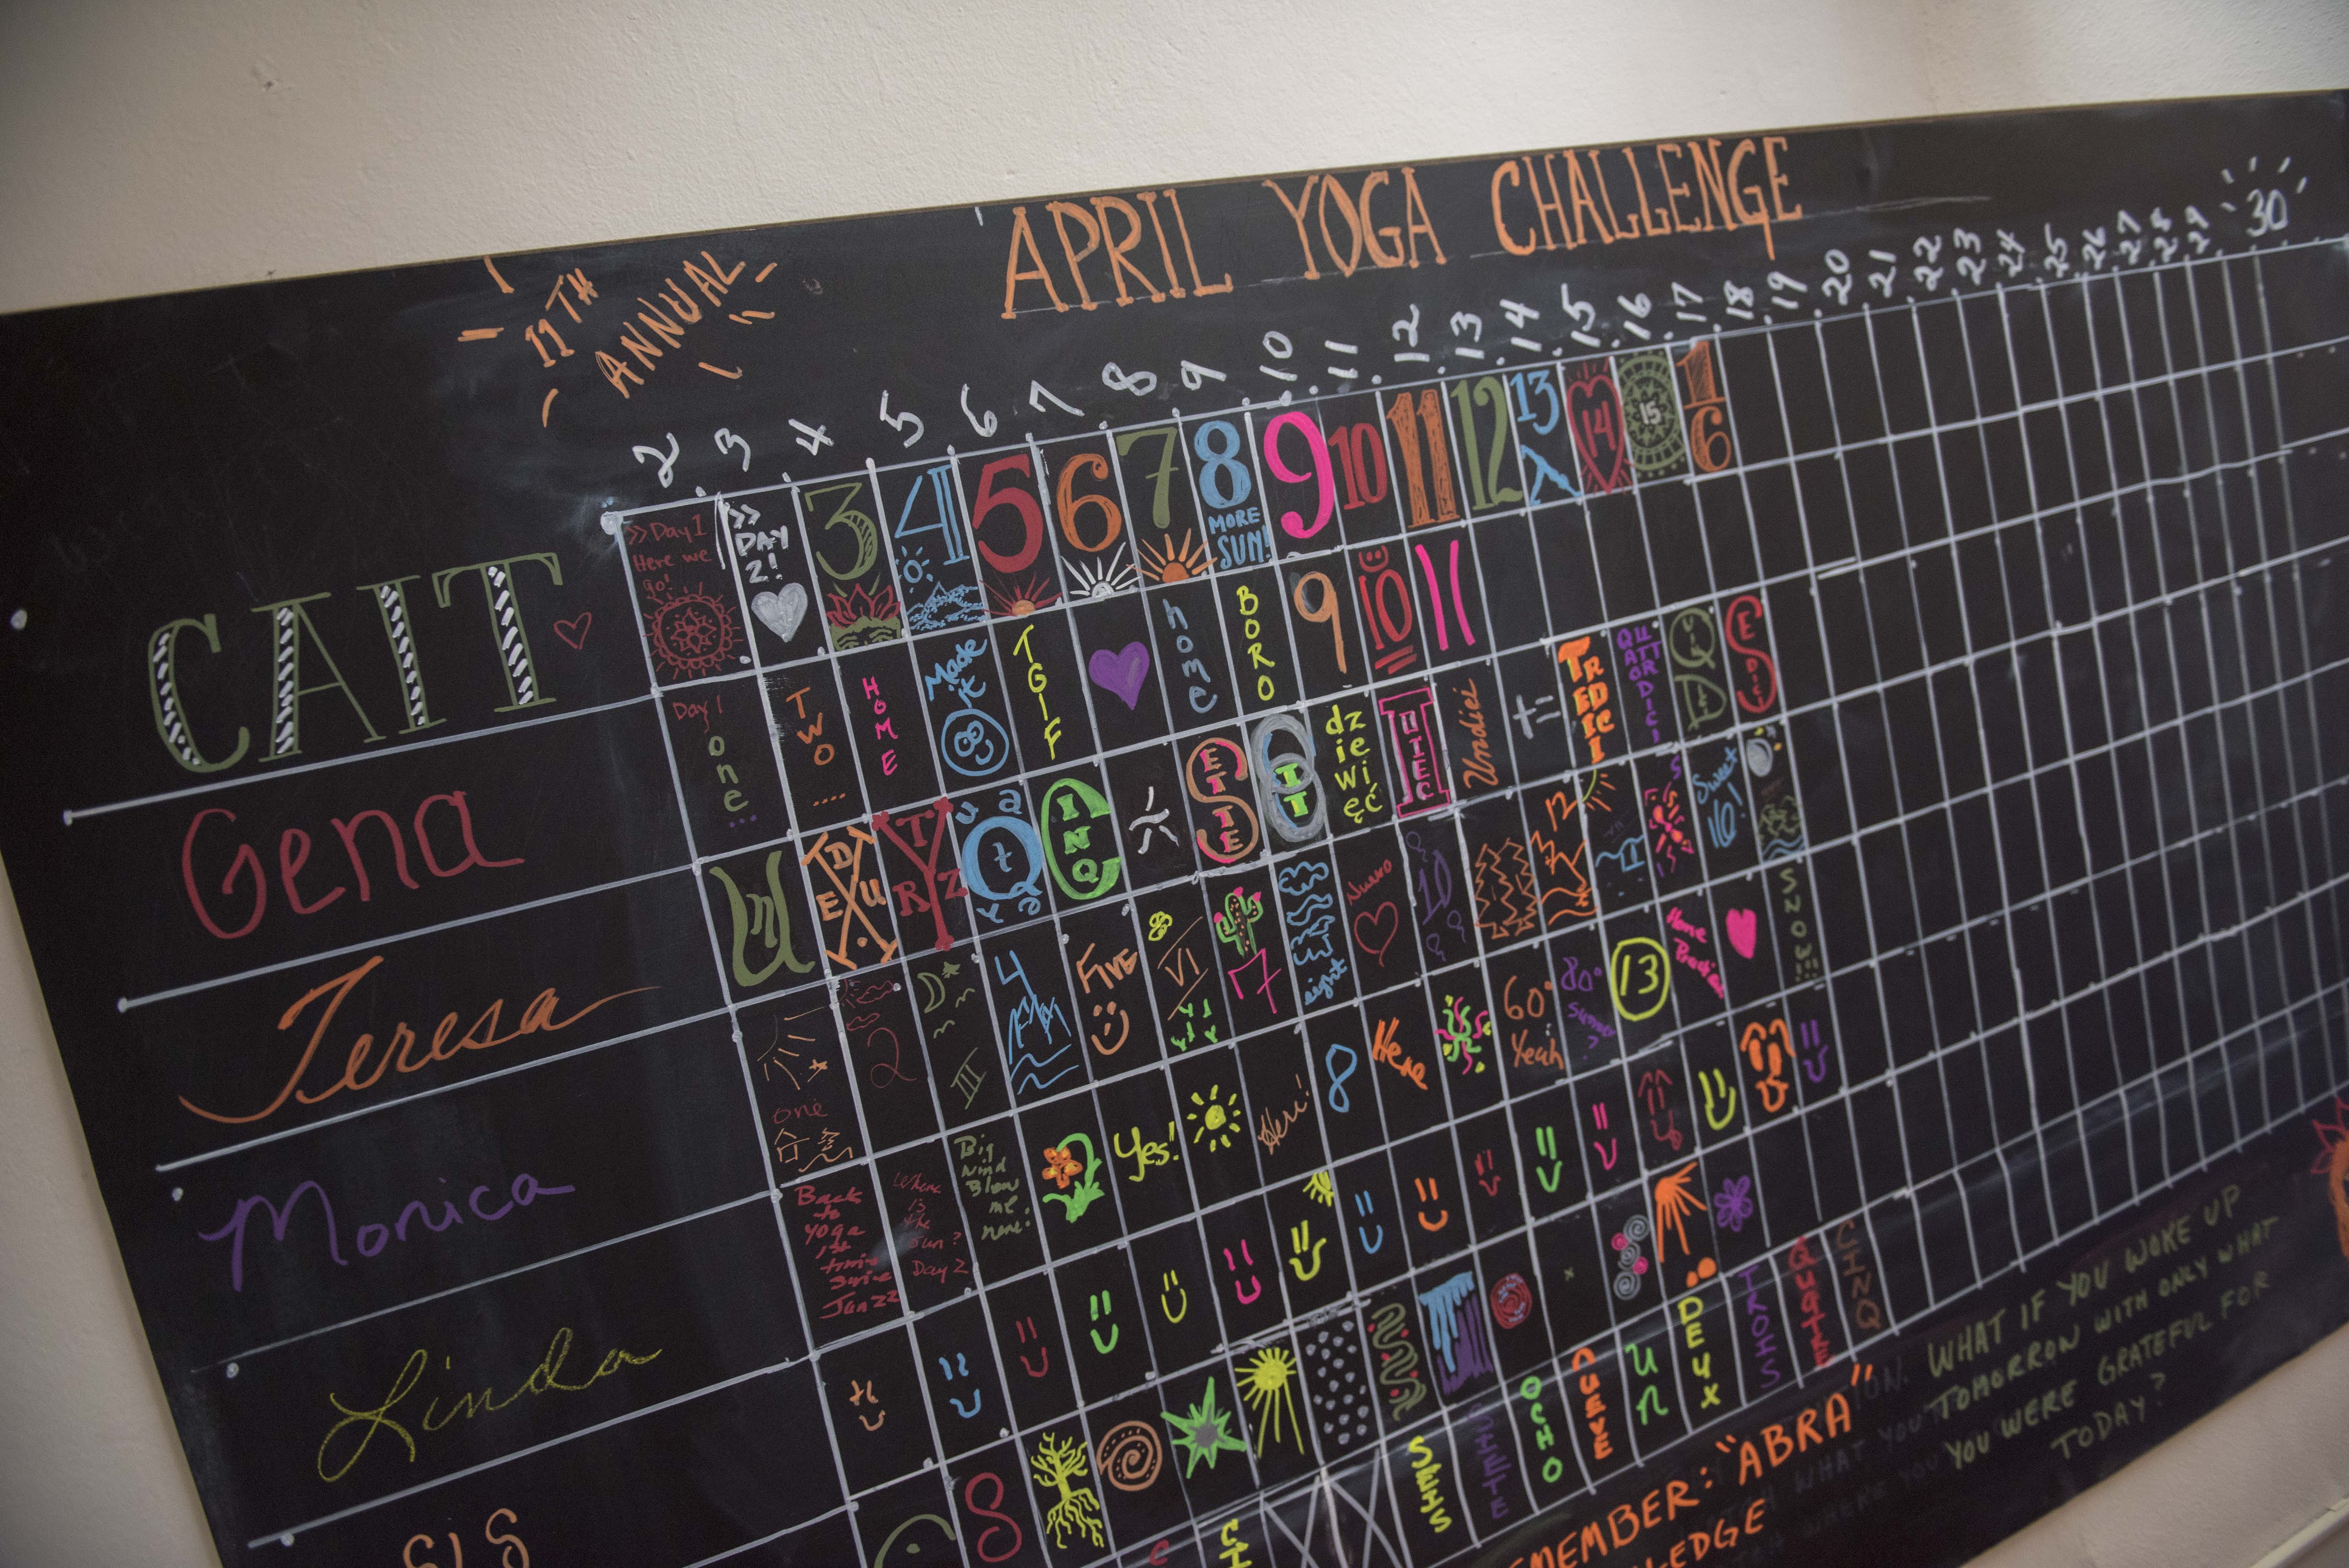 APRIL YOGA CHALLENGE
11TH
ANNUAL
2 3 4 5 6 7 8 9 10 11 12 13 14 15 16 17 18 19 20 21 22 23 24 25 26 27 28 29 30
CAIT
>> Day 1
Here we
go!
>>
DAY
2!
3
4
5
6
7
8
MORE
SUN!
9
10
11
12
13
14
15
16
Gena
Day 1
one...
TWO
....
HOME
Made
it
TGIF
home
BORO
9
10
11
Teresa
Un
DEUX
TRZY
CINQ
SETTE
OTT
dziewięć
DIEC
Undici
TREDICI
QUATTORDICI
SEDICI
Monica
one
2
III
4
FIVE
VI
7
eight
10
12
Sweet
16!
Linda
Back
to
yoga
1st
time
since
Jan 22
Where
is
the
sun?
Day 2
Big
wind
Blew
me
here!
Yes!
Here!
8
Here
60°
Yeah
80°
summer
?
13
Home
Practice
SNOW!!!
SIS
SEIS
SIETE
OCHO
NUEVE
UN
DEUX
TROIS
QUATRE
CINQ
WHAT IF YOU WOKE UP
TOMORROW WITH ONLY WHAT
YOU WERE GRATEFUL FOR
TODAY?
EMEMBER: "ABRA"
EDGE